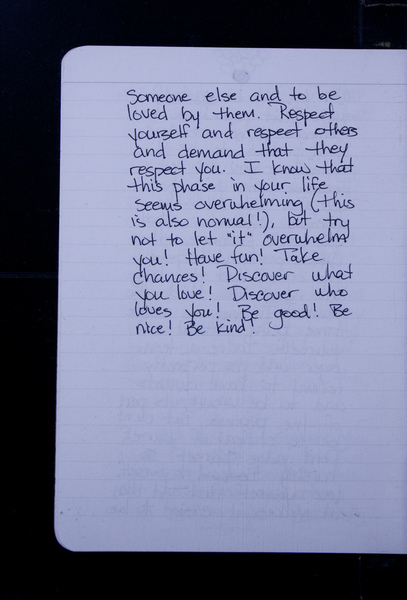 Someone else and to be
loved by them. Respect
yourself and respect others
and demand that they
respect you. I know that
this phase in your life
seems overwhelming (this
is also normal!), but try
not to let "it" overwhelm
you! Have fun! Take
chances! Discover what
you love! Discover who
loves you! Be good! Be
nice! Be kind!